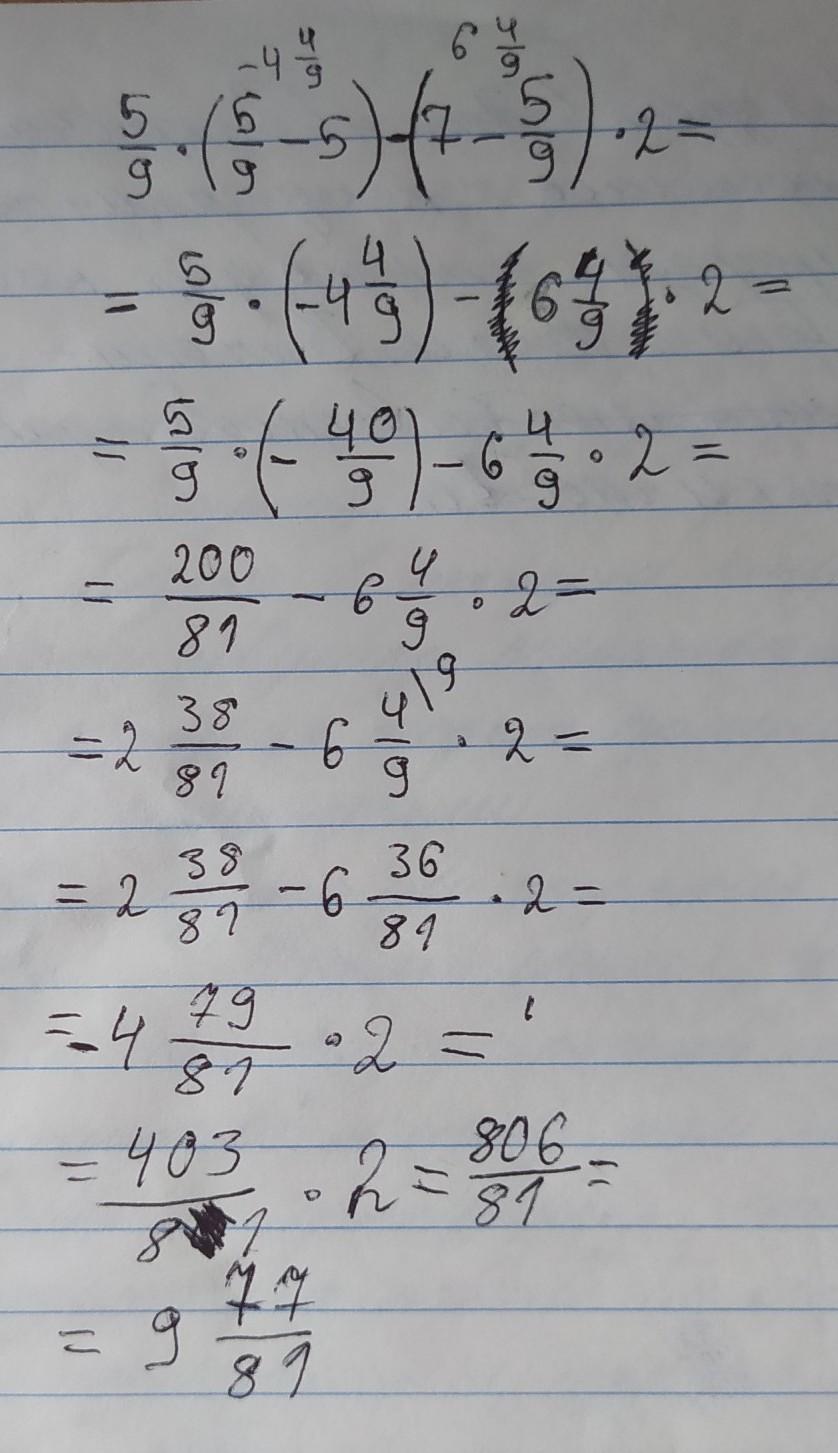 -4 4/9 6 4/9
5/9 · (5/9 - 5) - (7 - 5/9) · 2 =
= 5/9 · (-4 4/9) - (6 4/9) · 2 =
= 5/9 · (- 40/9) - 6 4/9 · 2 =
= 200/81 - 6 4/9 · 2 =
= 2 38/81 - 6 4\9/9 · 2 =
= 2 38/81 - 6 36/81 · 2 =
= -4 79/81 · 2 =
= 403/81 · 2 = 806/81 =
= 9 77/81